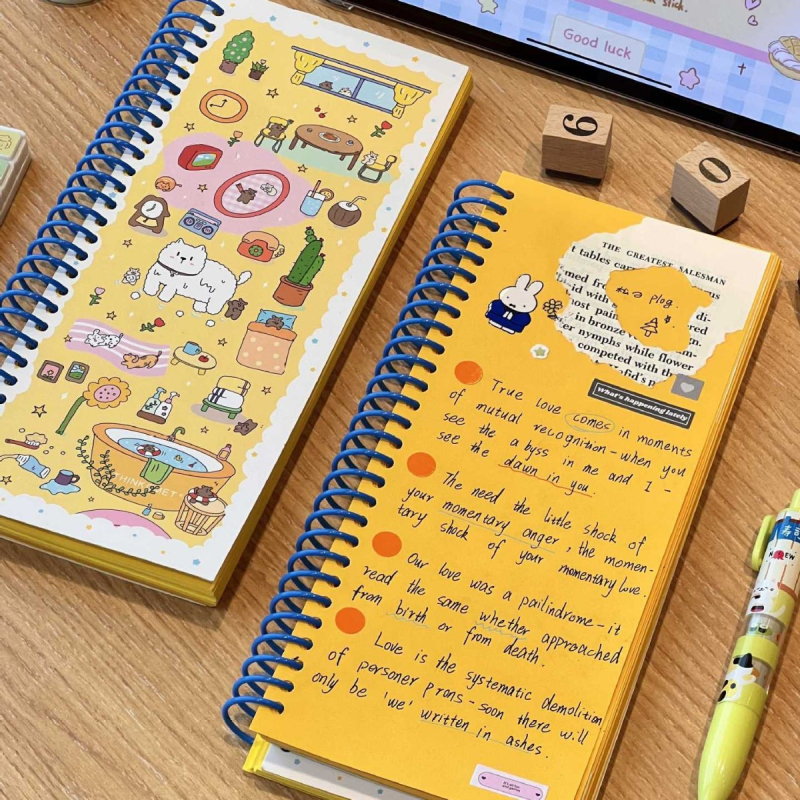 stick.
Good luck
6
0
THINK WET
THE GREATEST SALESMAN
t tables
med fr
di-
id with
ered
ost pain
in bronze
m-
er nymphs while flower
competed with th
Plog.
What's happening lately
True love comes in moments
of mutual recognition - when you
see the abyss in me and I -
see the dawn in you.
The need the little shock of
your momentary anger, the momen-
tary shock of your momentary love.
Our love was a pailindrome - it
read the same whether approached
from birth or from death.
Love is the systematic demolition
of personer prons - soon there will
only be 'we' written in ashes.